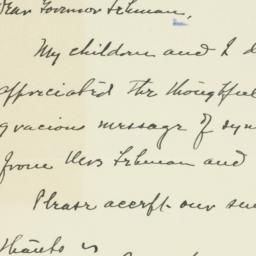 Dear Governor Lehman,
My children and I d
appreciated the thoughtful
gracious message of sym
from Mrs Lehman and
Please accept our sin
thanks